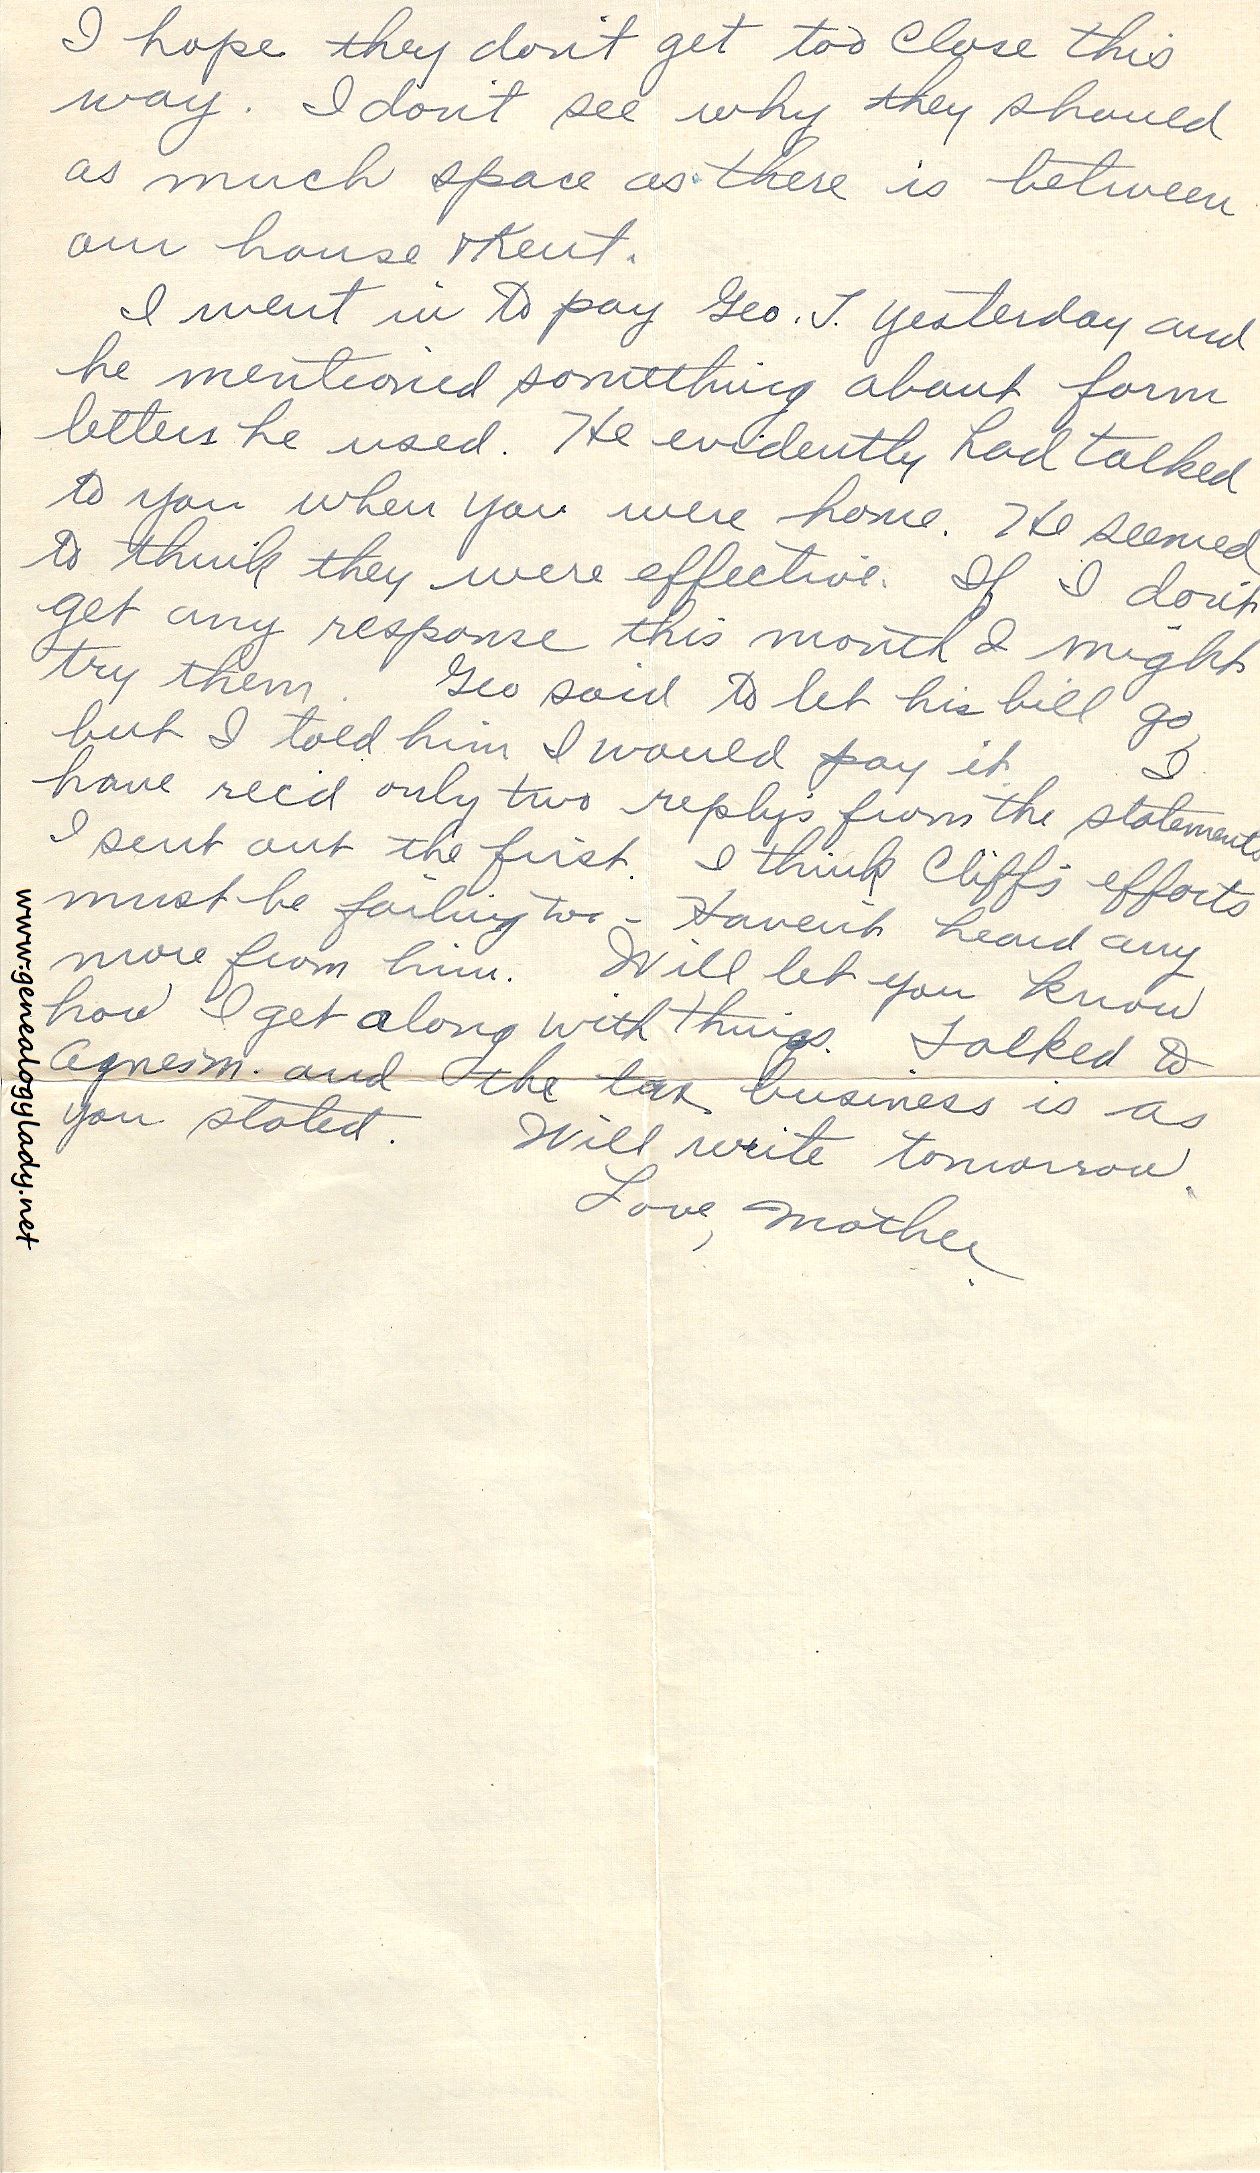 I hope they don't get too close this
way. I don't see why they should
as much space as there is between
our house & Kent.
I went in to pay Geo. T. yesterday and
he mentioned something about form
letters he used. He evidently had talked
to you when you were home. He seemed
to think they were effective. If I don't
get any response this month I might
try them. Geo said to let his bill go,
but I told him I would pay it. I
have rec'd only two replys from the statements
I sent out the first. I think Cliff's efforts
must be failing too - Haven't heard any
more from him. Will let you know
how I get along with things. Talked to
Agnes M. and the tax business is as
you stated. Will write tomorrow.
Love, Mother.
www.genealogylady.net